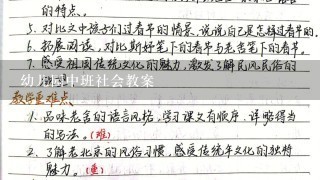 的特点。
5. 对比文中孩子们过春节的情景,说说自己是怎样过春节的。
6. 拓展阅读,对比斯好笔下的春节与老舍笔下的春节。
7. 感受祖国传统文化的魅力,激发了解民风民俗的
幼儿园中班社会教案
教学重难点
1. 品味老舍的语言风格,学习课文有顺序、详略得当
的写法。(难)
2. 了解老北京的风俗习惯,感受传统年文化的独特
魅力。(重)